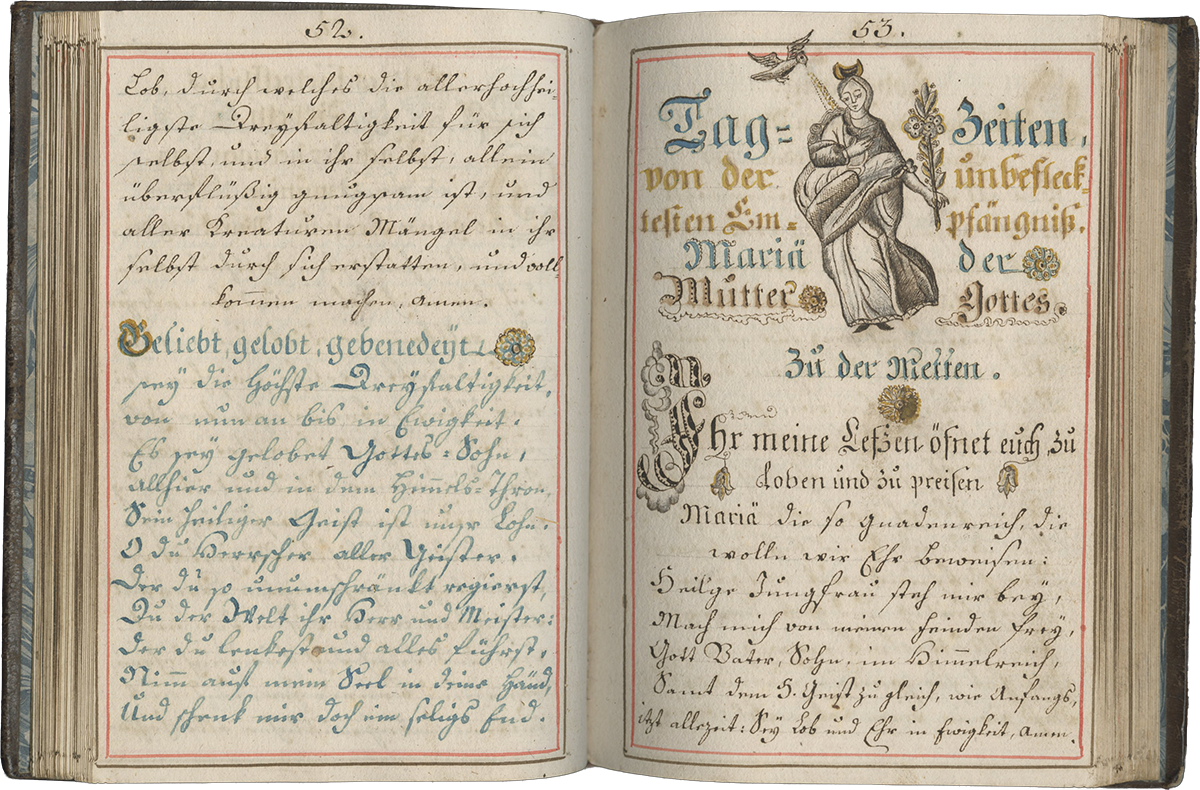 52.
Lob, durch welches die allerhochhei-
ligste Dreyfaltigkeit für sich
selbst, und in ihr selbst, allein
überflüßig gnugsam ist, und
aller Kreaturen Mängel in ihr
selbst durch sich erstatten, und voll-
kommen machen, amen.
Geliebt, gelobt, gebenedeyt
sey die höchste Dreyfaltigkeit,
von nun an bis in Ewigkeit.
Es sey gelobet Gottes=Sohn,
allhier und in dem Himmels=Thron,
Sein heiliger Geist ist unser Lohn.
O du Herrscher aller Geister.
Der du so unumschränkt regierst,
Du der Welt ihr Herr und Meister:
Der du lenkest und alles führst,
Nimm auf mein Seel in deine Händ,
Und schenk mir doch ein seligs End.
53.
Tag= Zeiten,
von der unbefleck-
testen Em= pfängniß.
Mariä der
Mutter Gottes.
Zu der Metten.
Ihr meine Lefzen öfnet euch zu
Loben und zu preisen
Mariä die so gnadenreich, die
wolln wir Ehr beweisen:
Heilge Jungfrau steh mir bey,
Mach mich von meinen feinden frey,
Gott Vater, Sohn, im Himmelreich,
Samt dem H. Geist zu gleich, wie Anfangs,
itzt allezeit: Sey Lob und Ehr in Ewigkeit, amen.